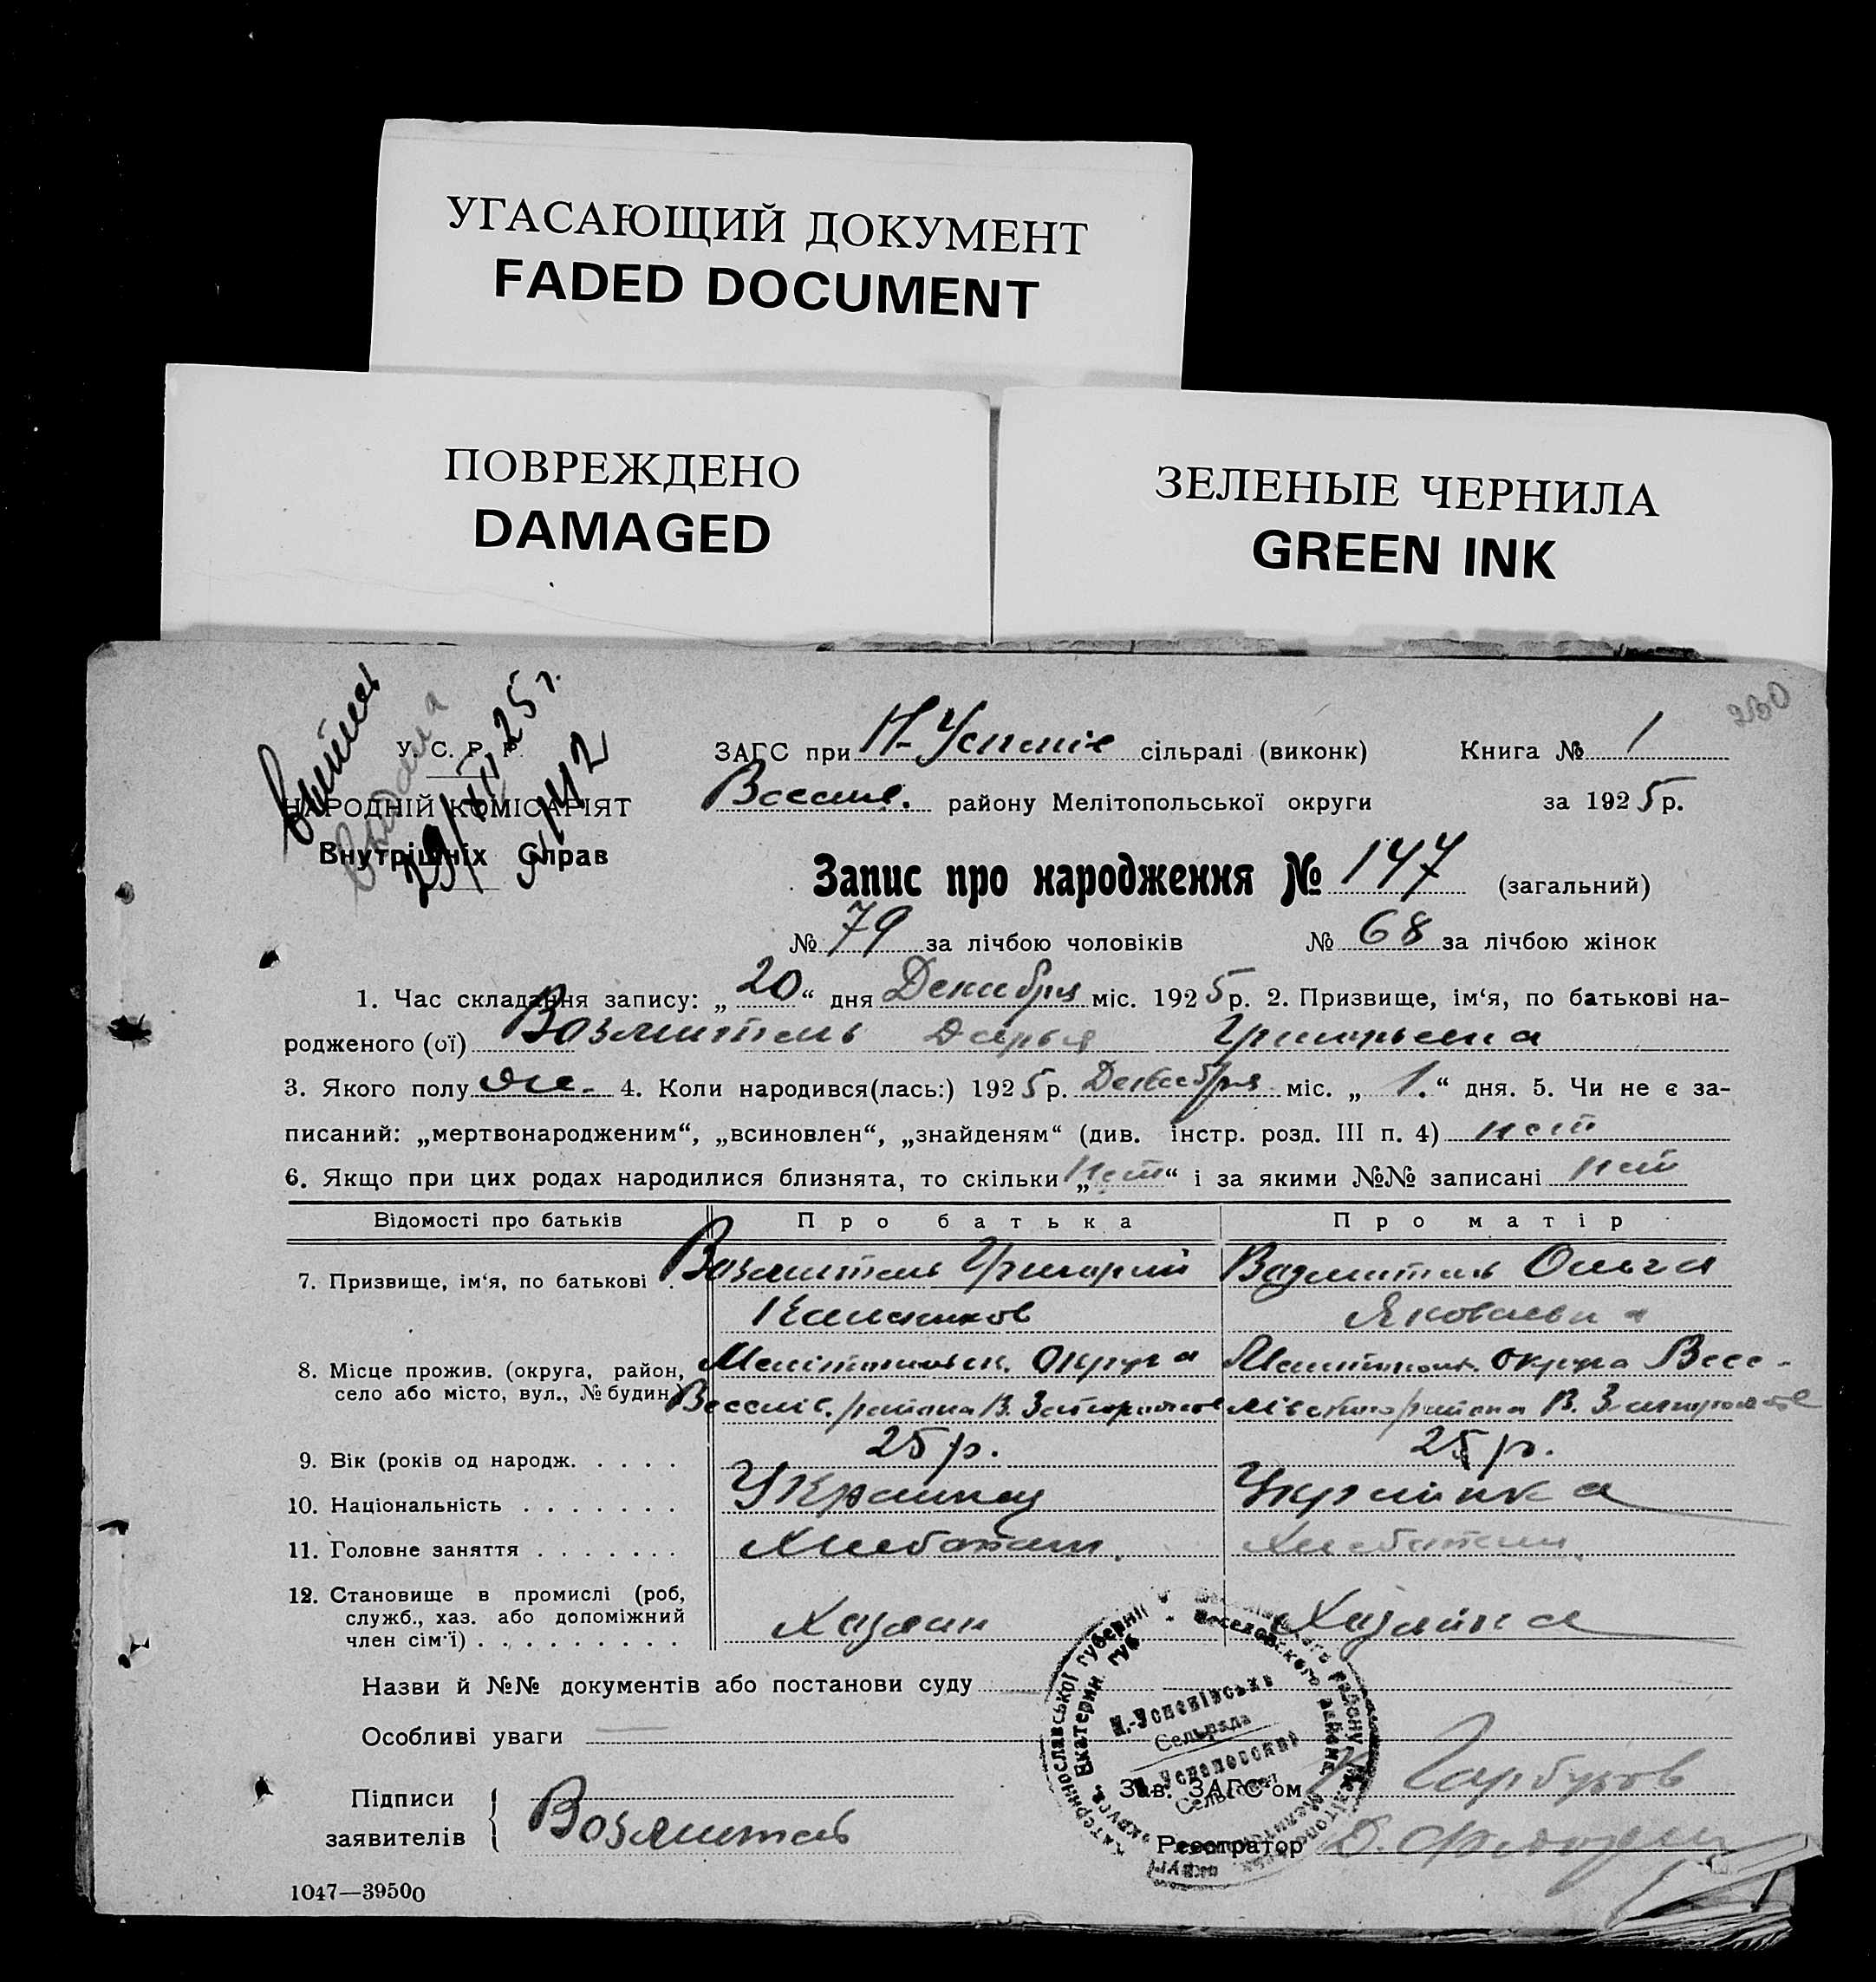 УГАСАЮЩИЙ ДОКУМЕНТ
FADED DOCUMENT
ПОВРЕЖДЕНО
DAMAGED
ЗЕЛЕНЫЕ ЧЕРНИЛА
GREEN INK
250
29/XII 25 г.
У. С. Р. Р.
НАРОДНІЙ КОМІСАРІЯТ
Внутрішніх Справ
ЗАГС при Н-Успение сільраді (виконк) Книга № 1
Весел. району Мелітопольської округи за 1925 р.
Запис про народження № 147 (загальний)
№ 79 за лічбою чоловіків № 68 за лічбою жінок
1. Час складання запису: „20“ дня Декабря міс. 1925 р. 2. Призвище, ім‘я, по батькові на-
родженого (ої) Возлмитель Дарья Григорьевна
3. Якого полу же. 4. Коли народився(лась:) 1925 р. Декабря міс. „1.“ дня. 5. Чи не є за-
писаний: „мертвонародженим“, „всиновлен“, „знайденям“ (див. інстр. розд. III п. 4) нет
6. Якщо при цих родах народилися близнята, то скільки „нет“ і за якими №№ записані нет
Відомості про батьків Про батька Про матір
7. Призвище, ім‘я, по батькові Григорий Ольга
Яковлевна
8. Місце прожив. (округа, район, Мелітопольск. Округа Мелитопол. округа Весе-
село або місто, вул., № будин.) Веселів. района В. лівского района В.
9. Вік (років од народж. 25 р. 25 р.
10. Національність Украинец Украинка
11. Головне заняття Хлебопаш. Хлебопаш.
12. Становище в промислі (роб,
служб., хаз. або допоміжний
член сім‘ї) Хазяин Хазяйка
Назви й №№ документів або постанови суду
Особливі уваги
Н.-Успенівська
Сельрада
Н. Успеновский
Сельсовет
Підписи
заявителів
Зав. ЗАГС‘ом Гарбузов
Реєстратор Д.
1047—39500